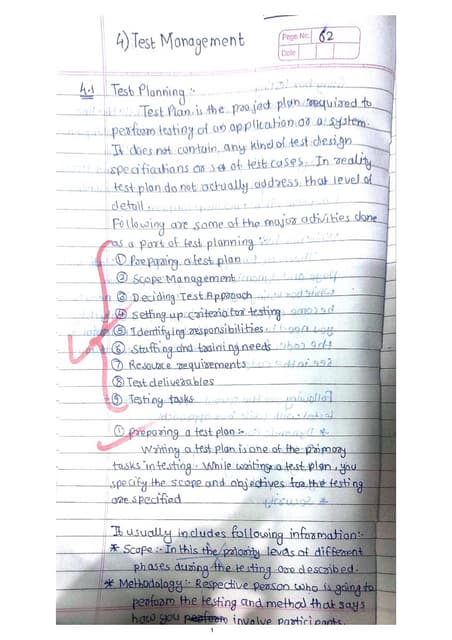 4) Test Management
Page No. 62
Date
4.1 Test Planning :-
Test Plan is the project plan required to
perform testing of an application or a system.
It does not contain any kind of test design
specifications or set of test cases. In reality
test plan do not actually address that level of
detail.
Following are some of the major activities done
as a part of test planning :-
① Preparing a test plan
② Scope Management
③ Deciding Test Approach
④ Setting up criteria for testing
⑤ Identifying responsibilities
⑥ Staffing and training needs
⑦ Resource requirements
⑧ Test deliverables
⑨ Testing tasks
① Preparing a test plan :-
Writing a test plan is one of the primary
tasks in testing. While writing a test plan, you
specify the scope and objectives for the testing
are specified
It usually includes following information:-
* Scope :- In this the priority levels of different
phases during the testing are described.
* Methodology :- Respective person who is going to
perform the testing and method that says
how you perform involve participants.
1